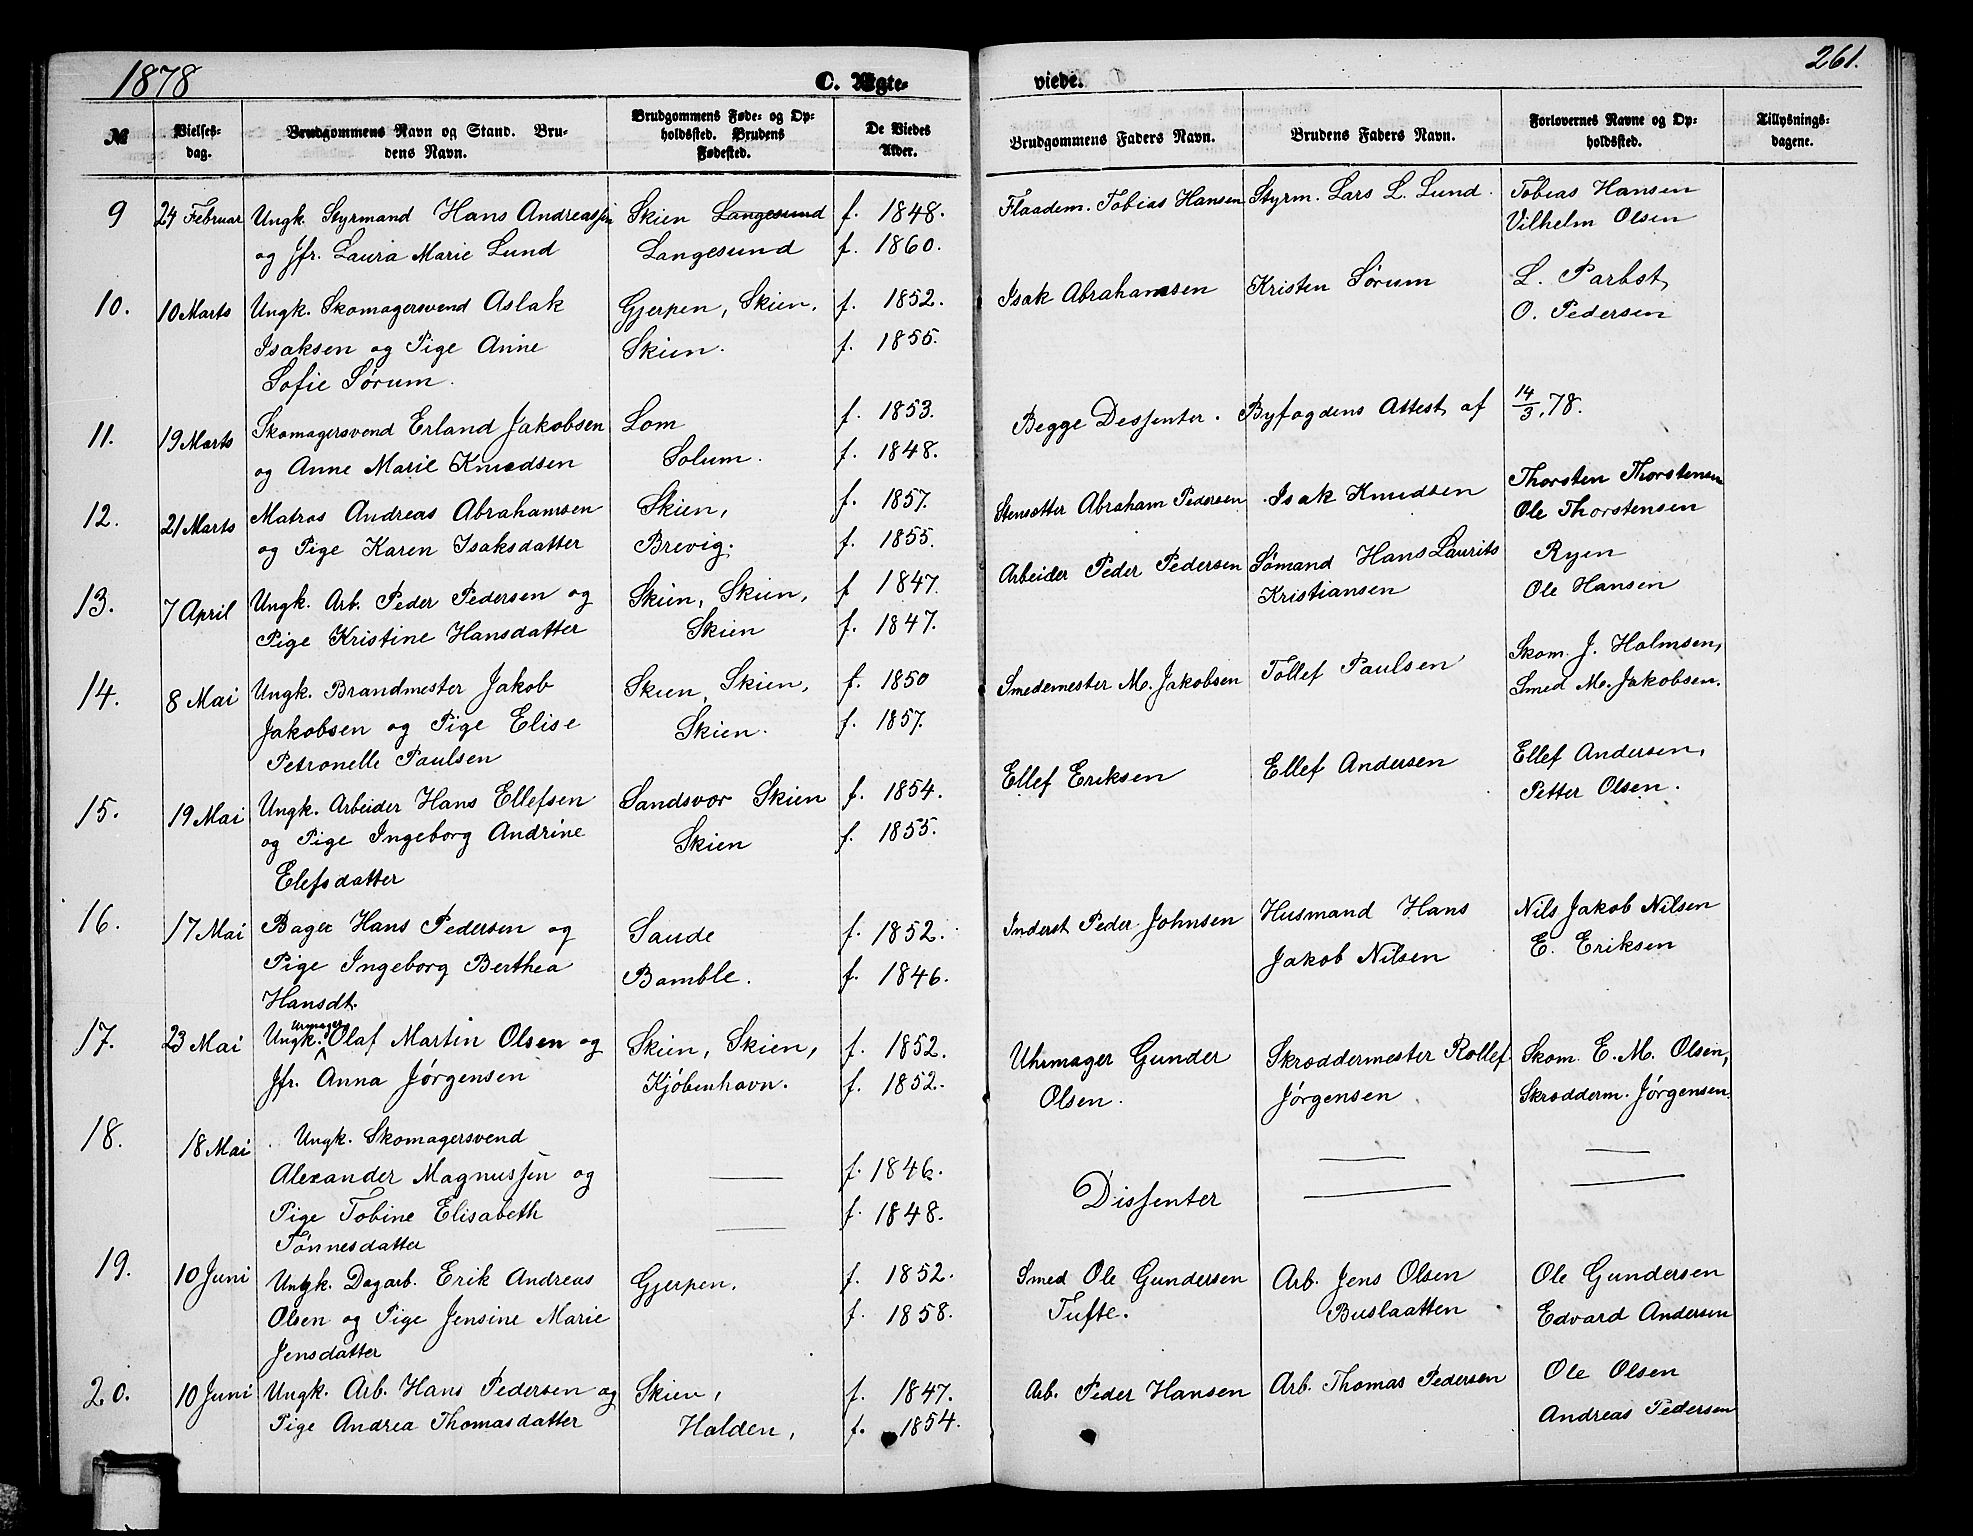 1878
C. Ægte-
viede.
261.
№
Vielses-
dag.
Brudgommens Navn og Stand. Bru-
dens Navn.
Brudgommens Føde- og Op-
holdssted. Brudens
Fødested.
De Viedes
Alder.
Brudgommens Faders Navn.
Brudens Faders Navn.
Forlovernes Navne og Op-
holdssted.
Tillysnings-
dagene.
9 24 Februar Ungk. Styrmand Hans Andreassen Skien Langesund f. 1848. Flaadem. Tobias Hansen Styrm. Lars L. Lund. Tobias Hansen
og Jfr. Laura Marie Lund Langesund f. 1860. Vilhelm Olsen
10. 10 Marts Ungk. Skomagersvend Aslak Gjerpen, Skien, f. 1852. Isak Abrahamsen Kristen Sørum L. Parbst,
Isaksen og Pige Anne Skien. f. 1855. O. Pedersen
Sofie Sørum.
11. 19 Marts Skomagersvend Erland Jakobsen Lom f. 1853. Begge Dissenter. Byfogdens Attest af 14/3, 78.
og Anne Marie Knudsen Solum. f. 1848.
12. 21 Marts Matros Andreas Abrahamsen Skien, f. 1857. Stensætter Abraham Pedersen Isak Knudsen Thorsten Thorstensen
og Pige Karen Isaksdatter Brevig. f. 1855. Ole Thorstensen
13. 7 April Ungk. Arb. Peder Pedersen og Skien, Skien, f 1847. Arbeider Peder Pedersen Sømand Hans Laurits Ryen
Pige Kristine Hansdatter Skien f. 1847. Kristiansen Ole Hansen
14. 8 Mai Ungk. Brandmester Jakob Skien, Skien, f. 1850 Smedemester M. Jakobsen Tollef Paulsen Skom. J. Holmsen,
Jakobsen og Pige Elise Skien. f. 1857. Smed M. Jakobsen.
Petronelle Paulsen
15. 19 Mai Ungk. Arbeider Hans Ellefsen Sandsvær Skien f. 1854. Ellef Eriksen Ellef Andersen Ellef Andersen,
og Pige Ingeborg Andrine Skien f. 1855. Petter Olsen.
Elefsdatter
16. 17 Mai Bager Hans Pedersen og Saude f. 1852. Inderst Peder Johnsen Husmand Hans Nils Jakob Nilsen
Pige Ingeborg Berthea Bamble. f. 1846. Jakob Nilsen E. Eriksen
Hansdt.
17. 23 Mai Ungk. Urmager Olaf Martin Olsen og Skien, Skien, f. 1852. Uhrmager Gunder Skræddermester Rollef Skom. E. M. Olsen,
Jfr. Anna Jørgensen Kjøbenhavn. f. 1852. Olsen. Jørgensen Skrædderm. Jørgensen
18. 18 Mai Ungk. Skomagersvend
Alexander Magnussen og f. 1846.
Pige Tobine Elisabeth f. 1848. Dissenter
Tønnesdatter
19. 10 Juni Ungk. Dagarb. Erik Andreas Gjerpen, f. 1852. Smed Ole Gundersen Arb. Jens Olsen Ole Gundersen
Olsen og Pige Jensine Marie f. 1858. Tufte. Buslaatten Edvard Andersen
Jensdatter
20. 10 Juni Ungk. Arb. Hans Pedersen og Skien, f. 1847. Arb. Peder Hansen Arb. Thomas Pedersen Ole Olsen
Pige Andrea Thomasdatter Halden, f. 1854. Andreas Pedersen